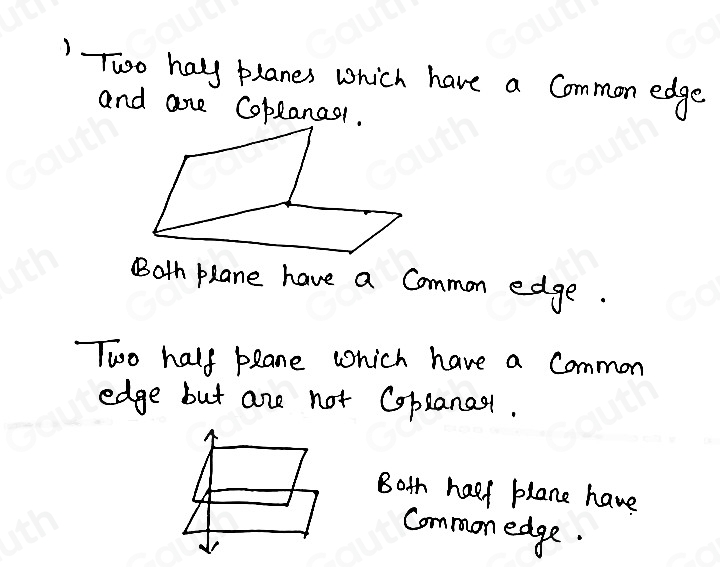 1) Two half planes which have a Common edge
and are Coplanar.
Both plane have a Common edge.
Two half plane which have a Common
edge but are not Coplanar.
Both half plane have
Common edge.
Gauth